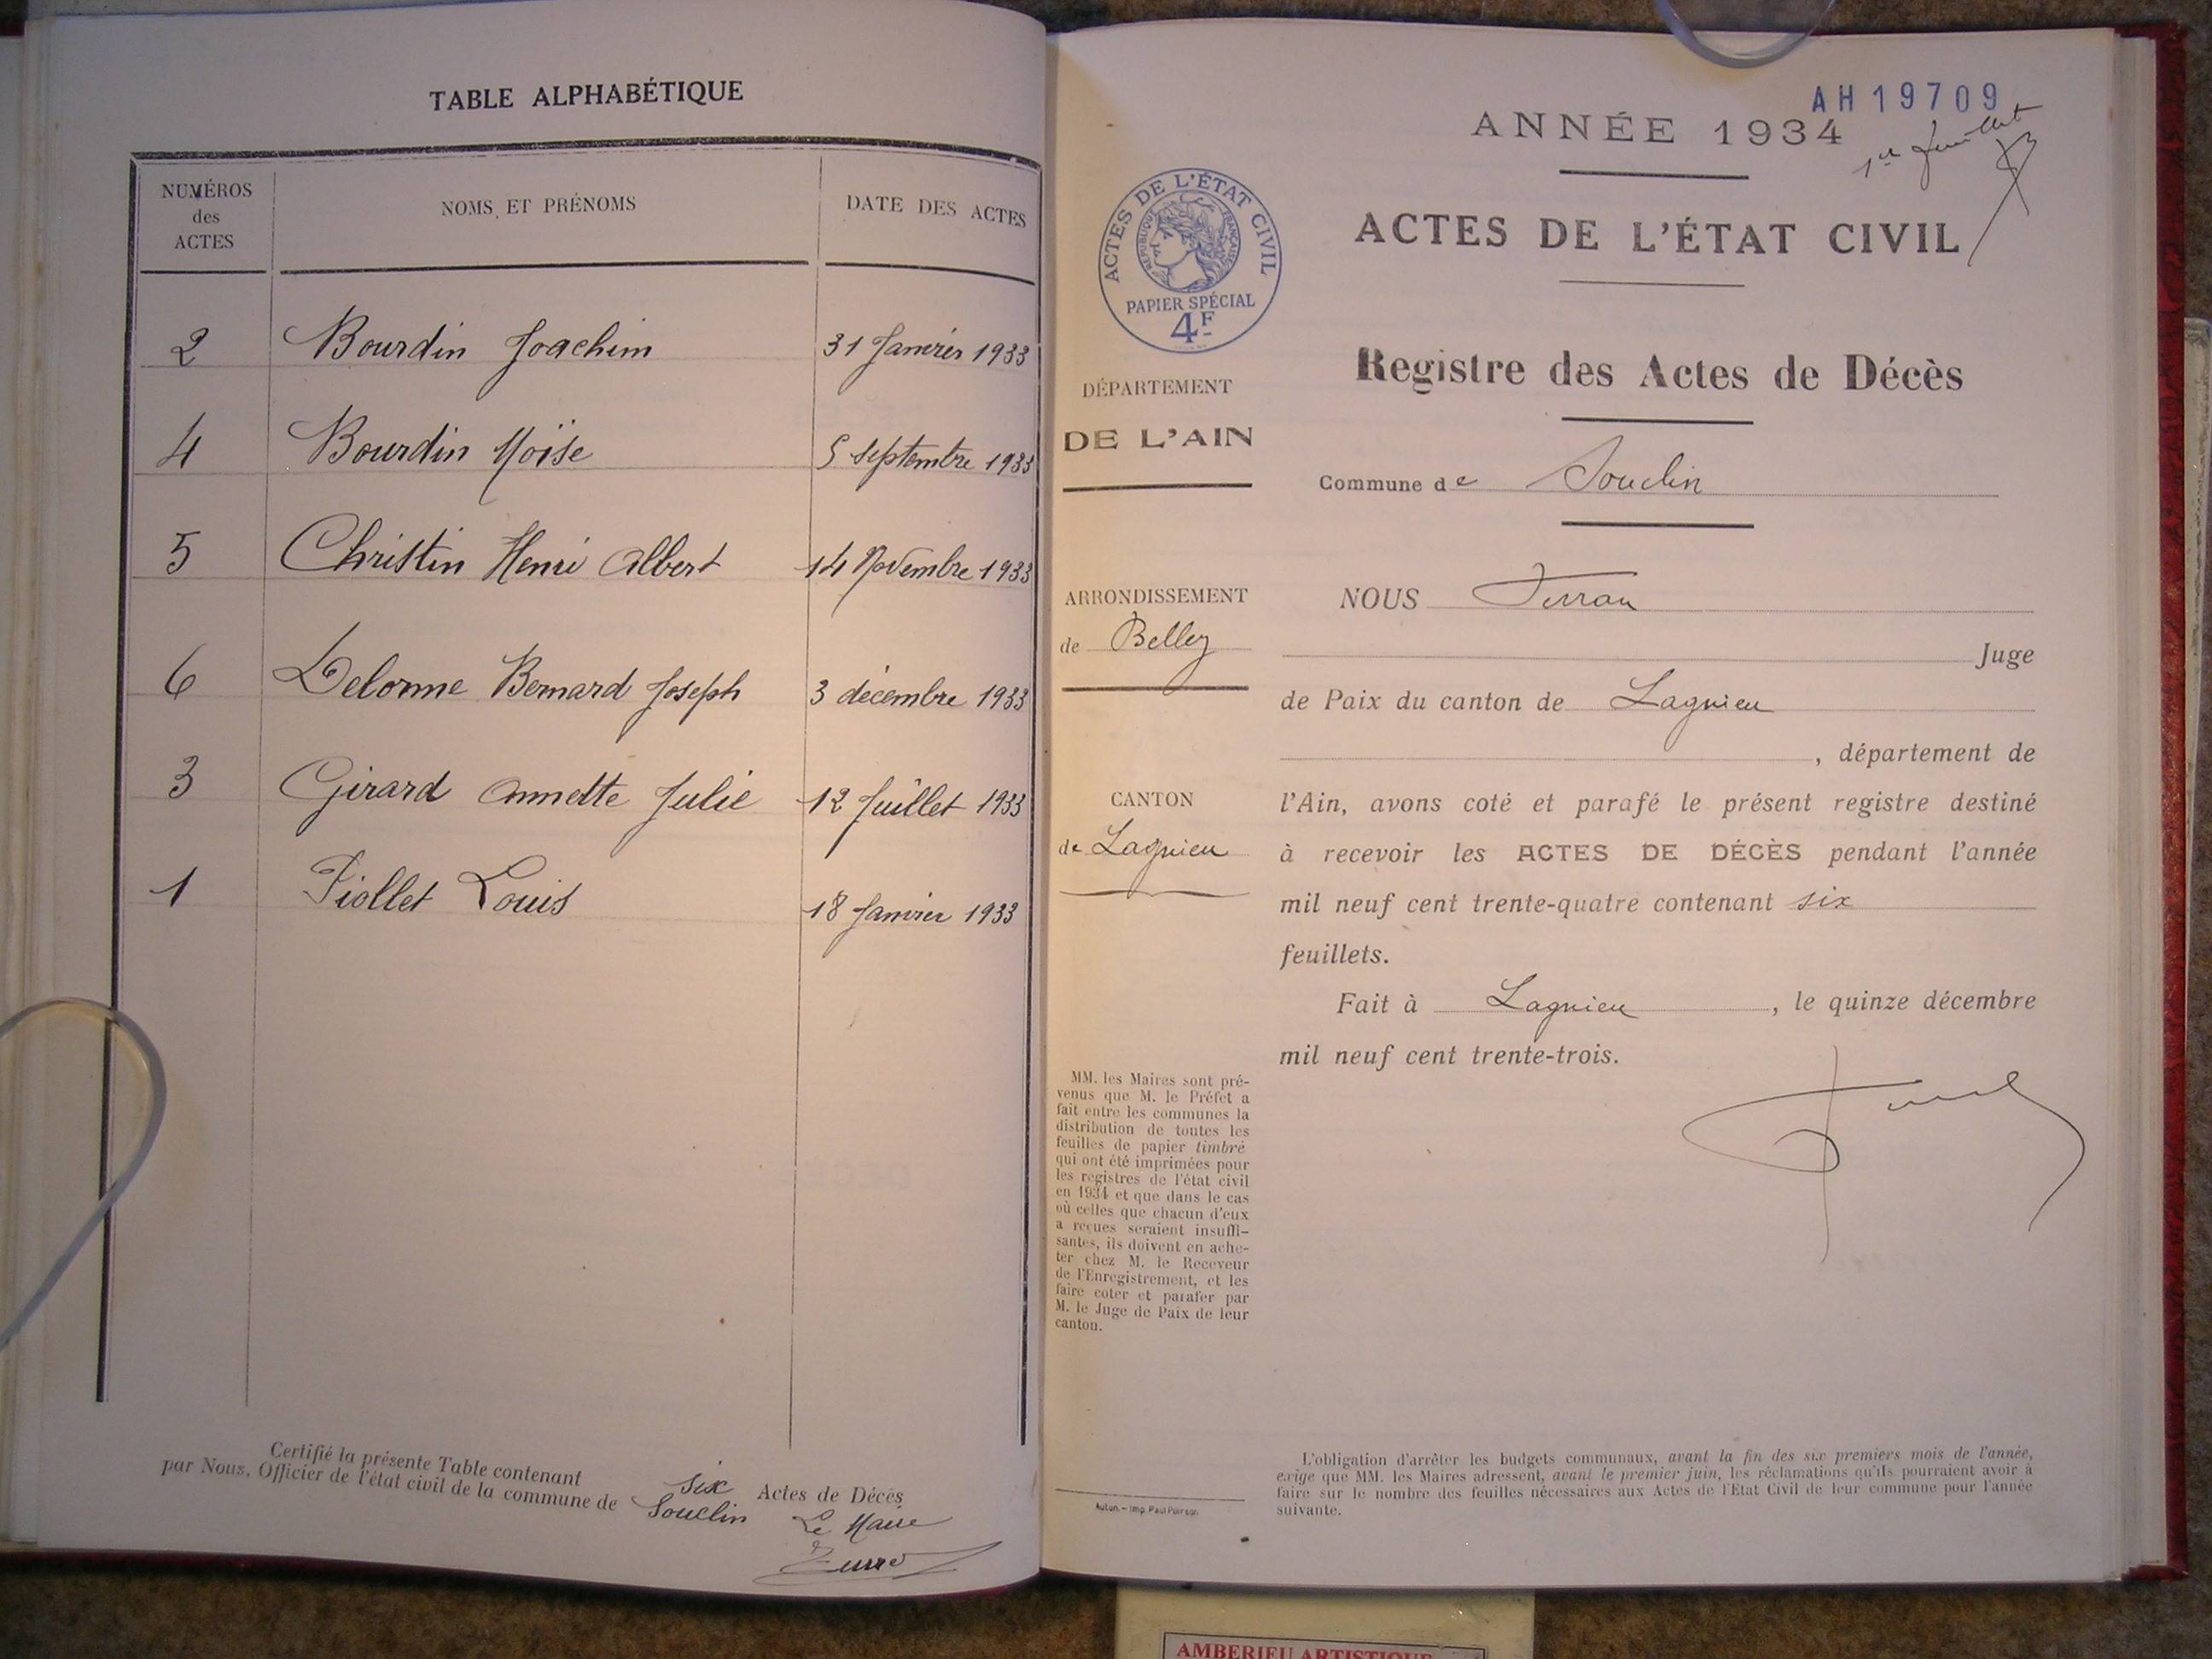 TABLE ALPHABÉTIQUE
NUMÉROS des ACTES
NOMS ET PRÉNOMS
DATE DES ACTES
2 Bourdin Joachim 31 Janvier 1933
4 Bourdin Moïse 5 septembre 1933
5 Christin Henri Albert 14 Novembre 1933
6 Delorme Bernard Joseph 3 décembre 1933
3 Girard Annette Julie 12 Juillet 1933
1 Piollet Louis 18 Janvier 1933
Certifié la présente Table contenant six Actes de Décès
par Nous, Officier de l'état civil de la commune de Souclin
Le Maire
AH19709
ANNÉE 1934
1er feuillet
ACTES DE L'ÉTAT CIVIL
RÉPUBLIQUE FRANÇAISE
PAPIER SPÉCIAL
4F
ACTES DE L'ÉTAT CIVIL
Registre des Actes de Décès
DÉPARTEMENT
DE L'AIN
Commune de Souclin
ARRONDISSEMENT
de Belley
CANTON
de Lagnieu
NOUS
Juge
de Paix du canton de Lagnieu
, département de
l'Ain, avons coté et parafé le présent registre destiné
à recevoir les ACTES DE DÉCÈS pendant l'année
mil neuf cent trente-quatre contenant six
feuillets.
Fait à Lagnieu, le quinze décembre
mil neuf cent trente-trois.
MM. les Maires sont pré-
venus que M. le Préfet a
fait entre les communes la
distribution de toutes les
feuilles de papier timbré
qui ont été imprimées pour
les registres de l'état civil
en 1934 et que dans le cas
où celles que chacun d'eux
a reçues seraient insuffi-
santes, ils doivent en ache-
ter chez M. le Receveur
de l'Enregistrement, et les
faire coter et parafer par
M. le Juge de Paix de leur
canton.
L'obligation d'arrêter les budgets communaux, avant la fin des six premiers mois de l'année,
exige que MM. les Maires adressent, avant le premier juin, les réclamations qu'ils pourraient avoir à
faire sur le nombre des feuilles nécessaires aux Actes de l'État Civil de leur commune pour l'année
suivante.
AMBERIEU ARTISTIQUE